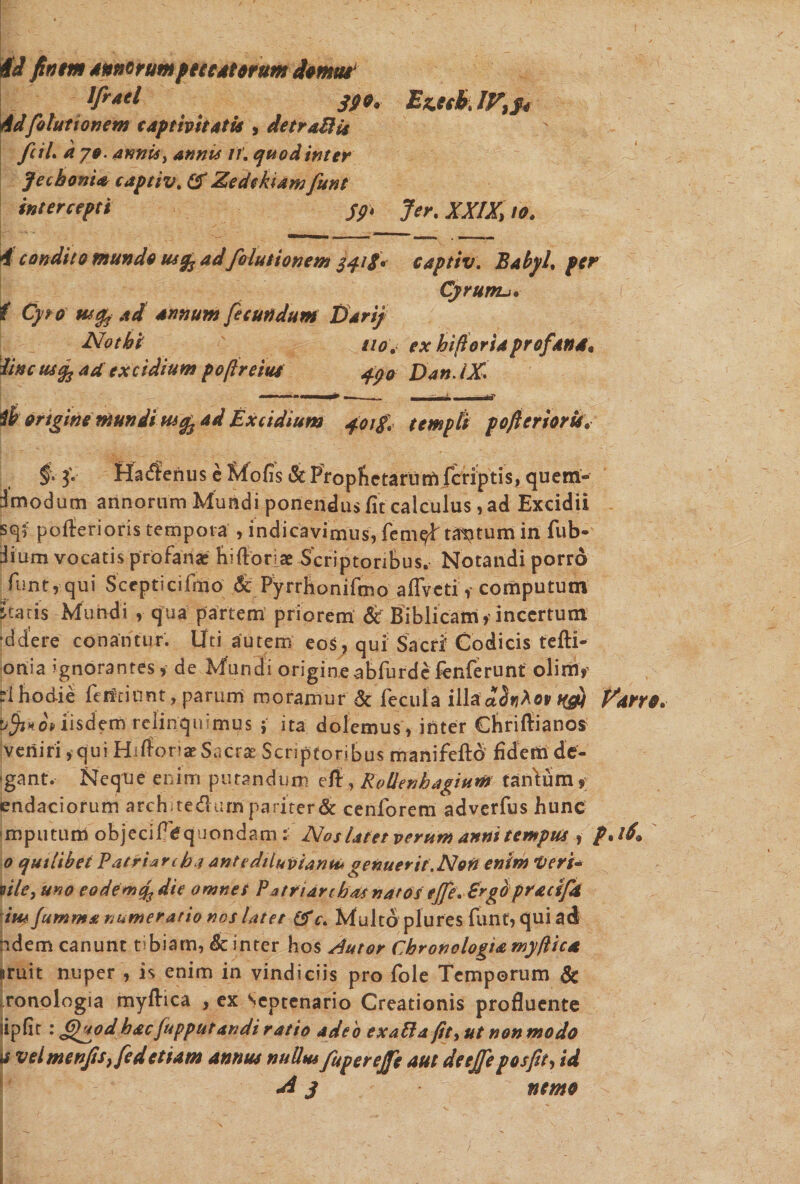 Ad finem annorum peccatorum domus
Israel 390. Ezech. IV, 5.
Ad solutionem captivitatis, detractis
scil. à 70. annis, annis 11. quod inter
Jechoniæ captiv. & Zedekiam sunt
intercepti 59. Jer. XXIX, 10.
A condito mundo usq; ad solutionem 3418. captiv. Babyl. per
Cyrum.
Cyro usq; ad annum secundum Darij
Nothi 110. ex historia profana.
Hinc usq; ad excidium posterius 490 Dan. IX.
Ab origine mundi usq; ad Excidium 4018. templi posterioris.
§. 3. Hactenus è Mosis & Prophetarum scriptis, quem-
dmodum annorum Mundi ponendus sit calculus, ad Excidii
sq; posterioris tempora, indicavimus, semel tantum in sub-
dium vocatis profanæ historiæ Scriptoribus. Notandi porrò
sunt, qui Scepticismo & Pyrrhonismo assveti, computum
ætatis Mundi, qua partem priorem & Biblicam, incertum
ddere conantur. Uti autem eos, qui Sacri Codicis testi-
onia ignorantes, de Mundi origine absurdè senserunt olim,
el hodiè sentiunt, parum moramur & secula illa ἄδηλον καὶ Varro.
iisdem relinquimus; ita dolemus, inter Christianos
veniri, qui Historiæ Sacræ Scriptoribus manifestò fidem de-
gant. Neque enim putandum est, Rollenhagium tantùm,
endaciorum architectum pariter & censorem adversus hunc
mputum objecisse quondam: Nos latet verum anni tempus, p. 16.
o quilibet Patriarcha antediluvianus genuerit. Non enim veri-
ile, uno eodemq; die omnes Patriarchas natos esse. Ergò præcisa
ius summæ numeratio nos latet &c. Multò plures sunt, qui ad
ndem canunt tibiam, & inter hos Autor Chronologiæ mysticæ
ruit nuper, is enim in vindiciis pro sole Temporum &
ronologia mystica, ex Septenario Creationis profluente
ipsit: Quod hæc supputandi ratio adeò exacta sit, ut non modo
s vel mensis, sed etiam annus nullus superesse aut deesse possit, id
A 3 nemo